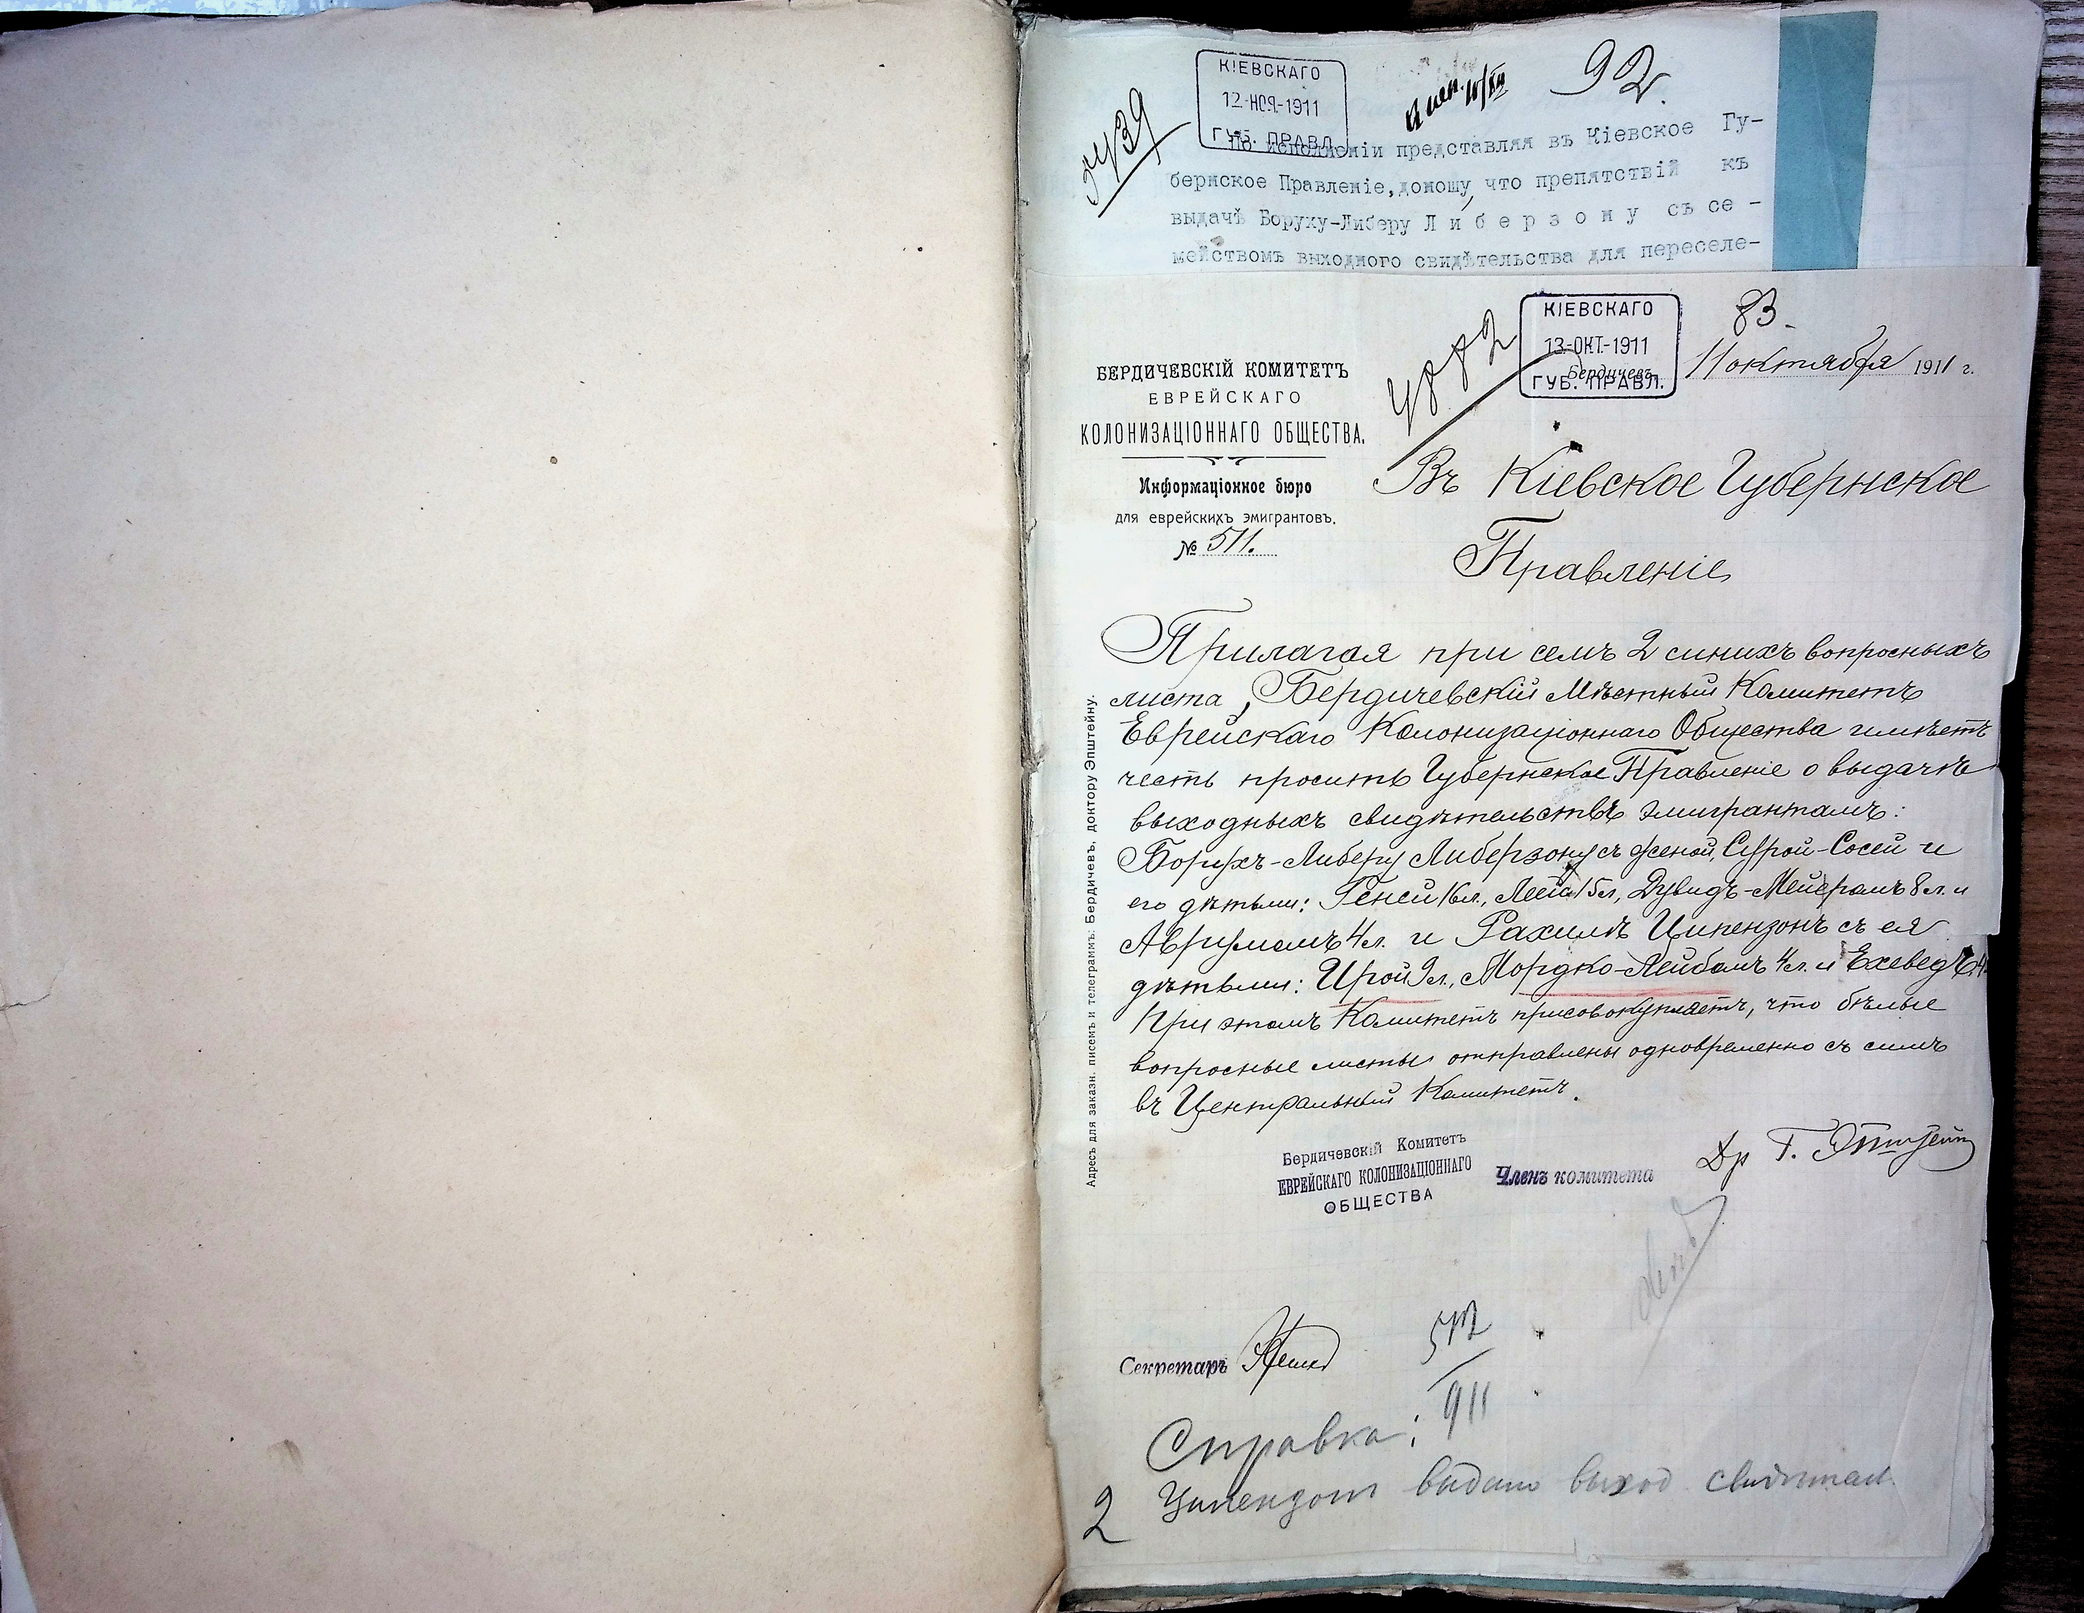 КІЕВСКАГО
12-НОЯ-1911
ГУБ. ПРАВЛ.
92.
По исполненіи представляя въ Кіевское Гу-
бернское Правленіе, доношу, что препятствій къ
выдачѣ Боруху-Либеру Либерзону съ се-
мействомъ выходного свидѣтельства для переселе-
КІЕВСКАГО
13-ОКТ.-1911
ГУБ. ПРАВЛ.
83.
4882
Бердичевъ, 11 октября 1911 г.
БЕРДИЧЕВСКІЙ КОМИТЕТЪ
ЕВРЕЙСКАГО
КОЛОНИЗАЦІОННАГО ОБЩЕСТВА.
Информаціонное бюро
для еврейскихъ эмигрантовъ.
№ 511.
Въ Кіевское Губернское
Правленіе
Прилагая при семъ 2 синихъ вопросныхъ
листа, Бердичевскій Мѣстный Комитетъ
Еврейскаго Колонизаціоннаго Общества имѣетъ
честь просить Губернское Правленіе о выдачѣ
выходныхъ свидѣтельствъ эмигрантамъ:
Борухъ-Либеру Либерзону съ женой, Сурой-Сосей и
его дѣтьми: Геней 16 л., Леей 15 л., Дувидъ-Мейеромъ 8 л. и
Аврумомъ 4 л. и Рахилѣ Ципензонъ съ ея
дѣтьми: Цирой 9 л., Мордко-Лейбомъ 4 л. и Ехеведъ
При этомъ Комитетъ присовокупляетъ, что бѣлые
вопросные листы отправлены одновременно съ симъ
въ Центральный Комитетъ.
Адресъ для заказн. писемъ и телеграммъ: Бердичевъ, доктору Эпштейну.
Бердичевскій Комитетъ
ЕВРЕЙСКАГО КОЛОНИЗАЦІОННАГО
ОБЩЕСТВА
Членъ комитета
Др Г. Эпштейн
Секретарь
911
Справка:
2 Ципензон видано выход свидѣтел.